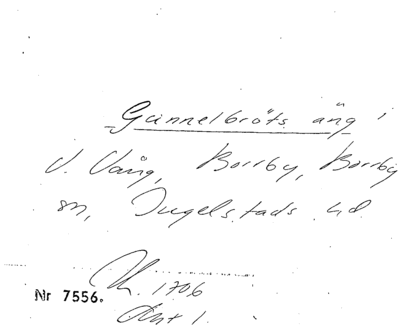 Gunnelbröts äng i
V. Vång, Borrby, Borrby
sn, Ingelstads hd.
1706
Nr 7556.
Akt 1.